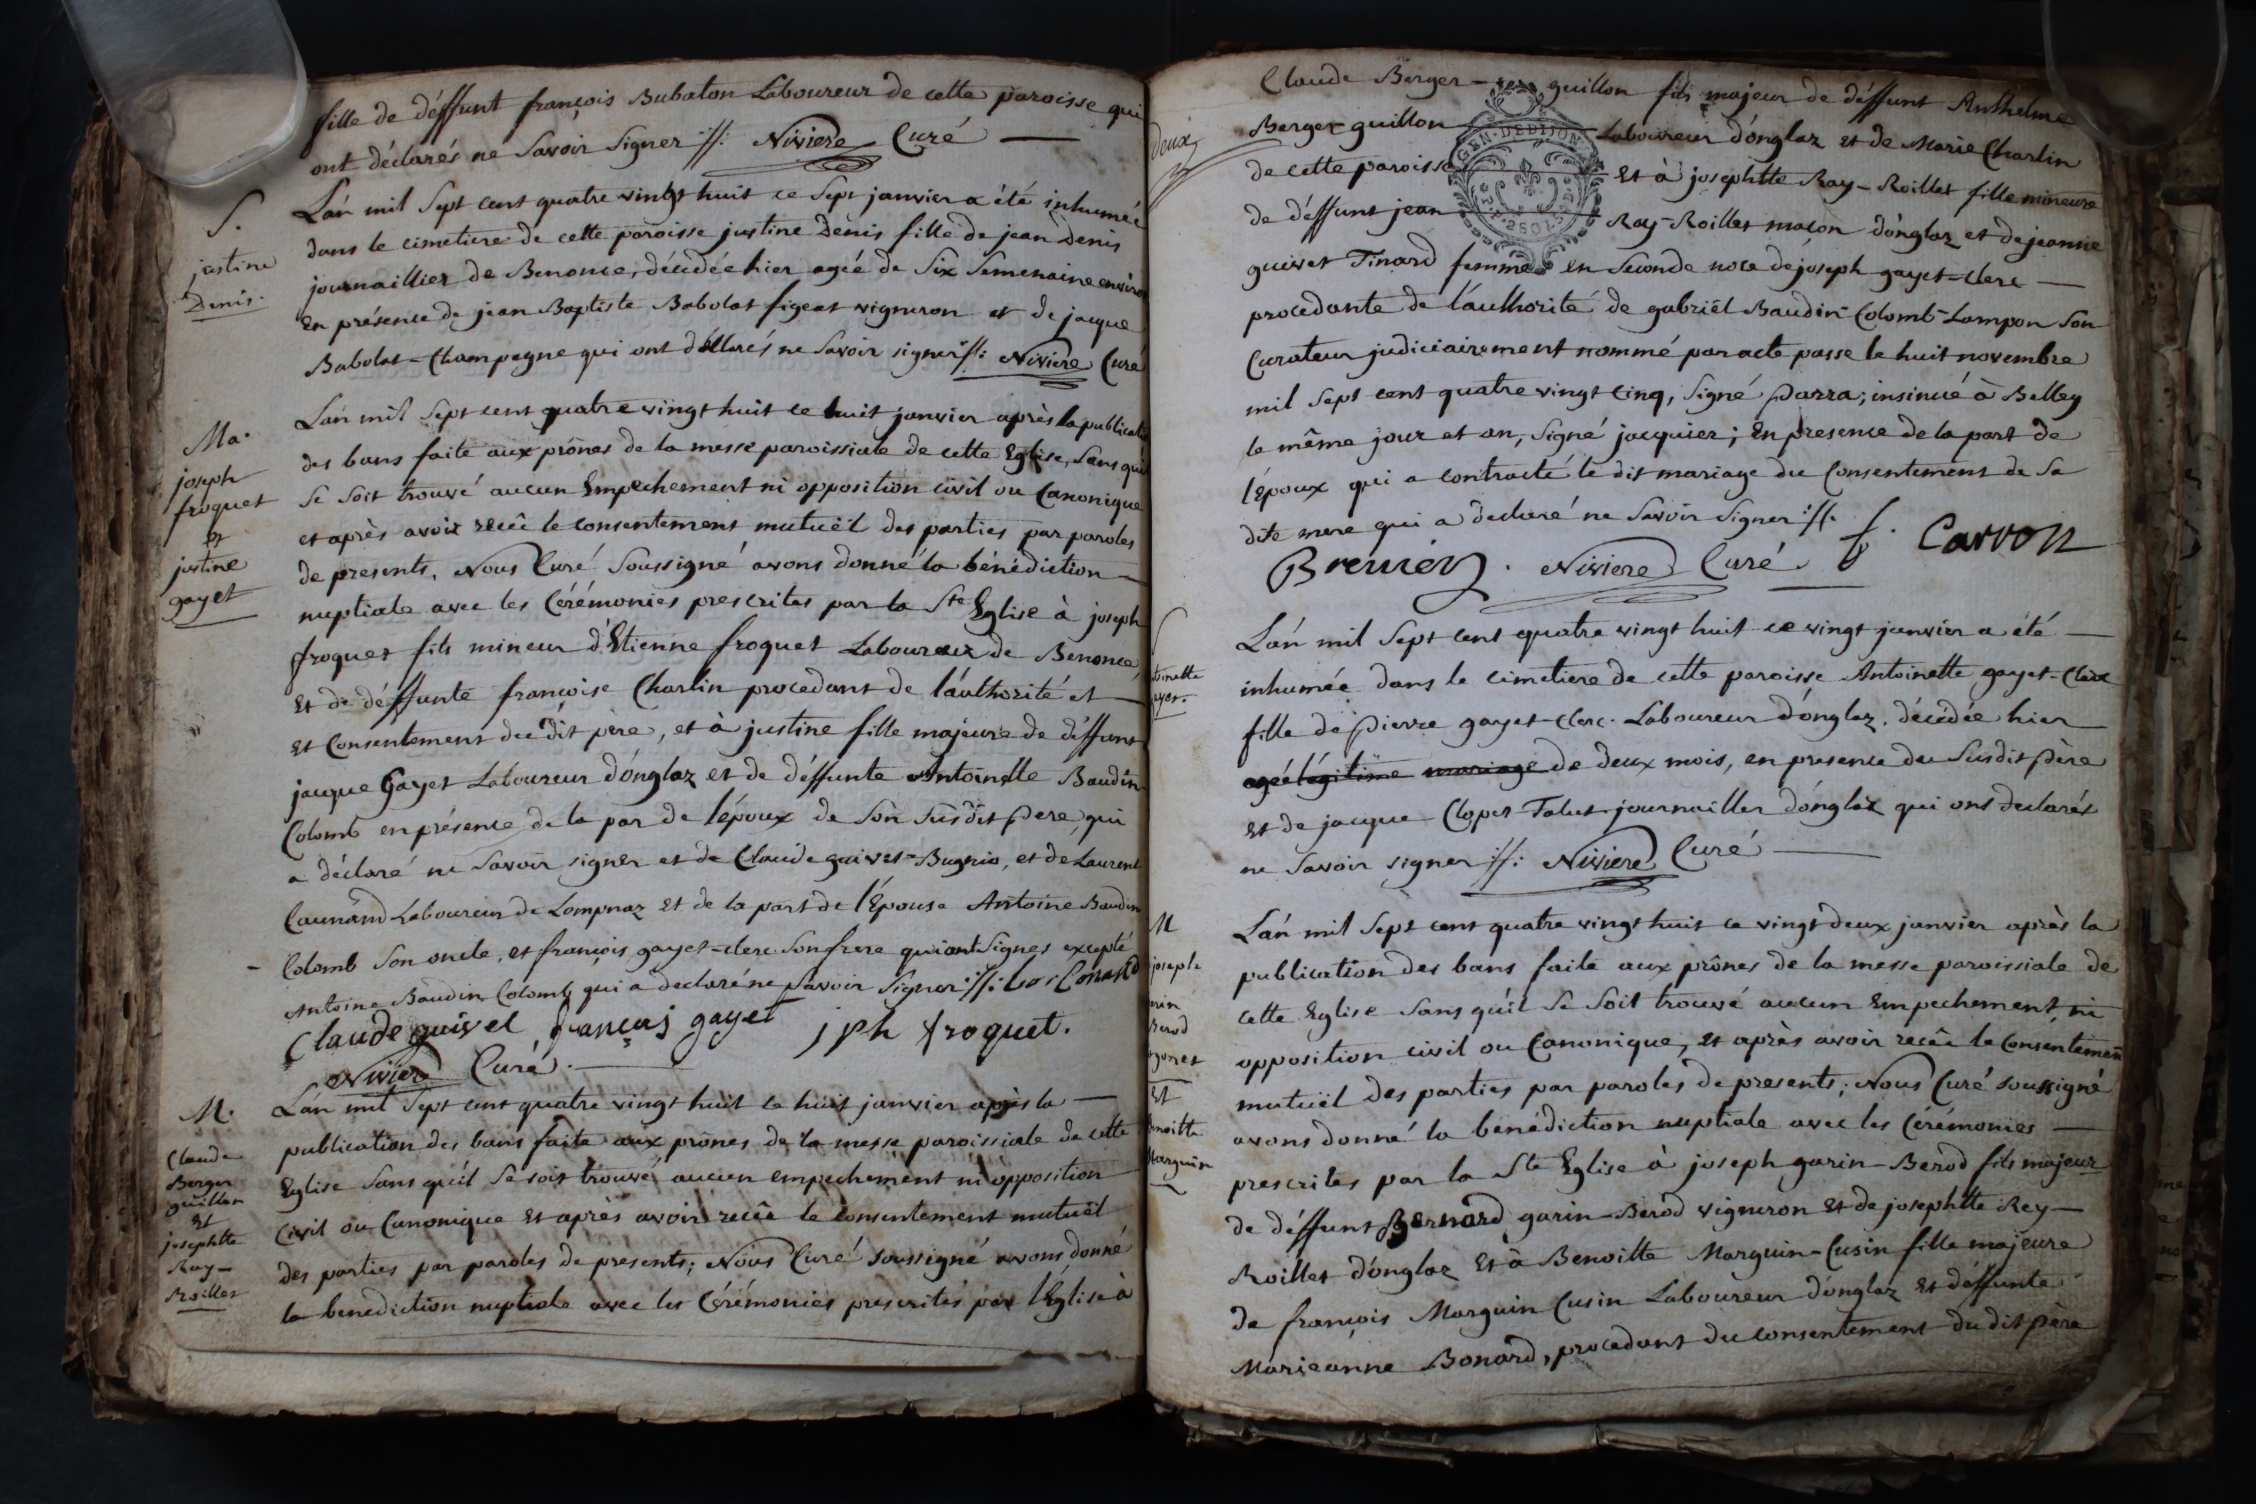 fille de déffunt françois Bubaton Laboureur de cette paroisse qui
ont déclarés ne Savoir Signer ://: Niviere Curé
S.
justine
Denis.
L'an mil Sept cent quatre vingt huit ce Sept janvier a été inhumée
dans le cimetiere de cette paroisse justine Denis fille de jean Denis
journaillier de Benonce, décédée hier ageé de Six Semenaine environ
En présence de jean Baptiste Babolat figeat vigneron et de jacque
Babolat-Champagne qui ont déclarés ne Savoir signer ://: Niviere Curé
Ma.
joseph
froquet
et
justine
gayet
L'an mil Sept cent quatre vingt huit ce huit janvier après la publicatio
des bans faite aux prônes de la messe paroissiale de cette Eglise, Sans qu'il
Se Soit trouvé aucun Empechement ni opposition civil ou Canonique
et après avoir recû le consentement mutuël des parties par paroles
de presents, Nous Curé Soussigné avons donné la bénédiction
nuptiale avec les Cérémonies prescrites par la Ste Eglise à joseph
froquet fils mineur d'Etienne froquet Laboureur de Benonce
Et de déffunte françoise Charlin procedant de l'authorité et
Et Consentement du dit père, et à justine fille majeure de déffunt
jacque Gayet Laboureur d'onglaz et de déffunte Antoinette Baudin
Colomb en présence de la par de l'époux de Son Susdit Pere, qui
a déclaré ne Savoir signer et de Claude guivet-Bugnio, et de Laurent
Caunand Laboureur de Lompnaz et de la part de l'Epouse Antoine Baudin
Colomb Son oncle, et françois gayet-clerc Son frere qui ont Signés excepté
Antoine Baudin Colomb qui a declaré ne Savoir Signer ://:
Claude guivet françois gayet jph froquet.
Niviere Curé.
M.
Claude
Berger
Guillon
Et
josephtte
Ray-
Roillet
L'an mil Sept cent quatre vingt huit ce huit janvier après la
publication des bans faite aux prônes de la messe paroissiale de cette
Eglise Sans qu'il Se soit trouvé aucun empechement ni opposition
Civil ou Canonique Et après avoir recû le consentement mutuël
des parties par paroles de presents; Nous Curé soussigné avons donné
la benediction nuptiale avec les Cérémonies prescrites par l'Eglise à
deux
Claude Berger-guillon fils majeur de déffunt Anthelme
Berger-guillon Laboureur d'onglaz et de Marie Charlin
de cette paroisse Et à josephtte Ray-Roillet fille mineure
de déffunt jean Ray-Roillet maçon d'onglaz et de jeanne
GEN. DE DIJON
guivet Tinard femme en Seconde noce de joseph gayet-clerc
procedante de l'authorité de gabriël Baudin-Colomb-Lampon Son
Curateur judiciairement nommé par acte passe le huit novembre
mil Sept cent quatre vingt Cinq, Signé Parra; insinué à Belley
le même jour et an, Signé jacquier; En presence de la part de
l'Epoux qui a contracté le dit mariage du Consentement de Sa
dite mere qui a declaré ne Savoir Signer ://:
Niviere Curé. f. Carron
S
toinette
ayet.
L'an mil Sept cent quatre vingt huit ce vingt janvier a été
inhumée dans le cimetiere de cette paroisse Antoinette gayet-Clerc
fille de Pierre gayet-clerc Laboureur d'onglaz, décédée hier
ageé légitime mariage de deux mois, en presence du Susdit Père
Et de jacque Clopet-Talut journaillier d'onglaz qui ont declarés
ne Savoir signer ://: Niviere Curé
M
joseph
arin
Berod
Et
enoitte
Marguin
L'an mil Sept cent quatre vingt huit ce vingt deux janvier après la
publication des bans faite aux prônes de la messe paroissiale de
cette Eglise Sans qu'il Se Soit trouvé aucun Empechement, ni
opposition civil ou Canonique, et après avoir recû le Consentement
mutuël des parties par paroles de presents; Nous Curé soussigné
avons donné la bénédiction nuptiale avec les Cérémonies
prescrites par la Ste Eglise à joseph garin-Berod fils majeur
de déffunt Bernard garin-Berod vigneron Et de josephtte Rey-
Roillet d'onglaz Et à Benoitte Marguin-Cusin fille majeure
de françois Marguin Cusin Laboureur d'onglaz Et déffunte
Marieanne Bonard, procedant du consentement du dit père